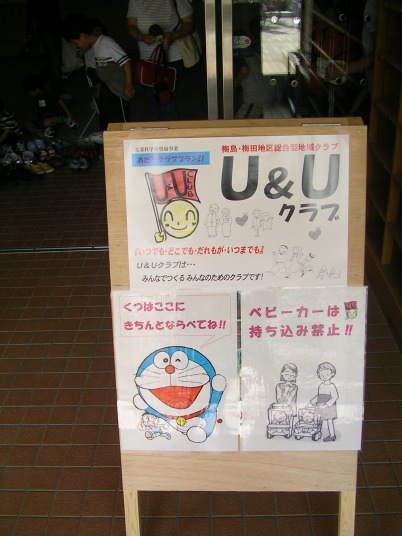 文部科学省委嘱事業
あだちクラブプラン21
梅島・梅田地区総合型地域クラブ
U&U
クラブ
U&U
『いつでも・どこでも・だれもが・いつまでも』
U&Uクラブは・・・
みんなでつくる みんなのためのクラブです!
くつはここに
きちんとならべてね!!
ベビーカーは
持ち込み禁止!!